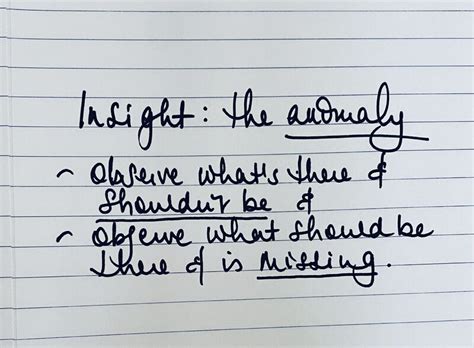 Insight: the anomaly
~ Observe what's there &
shouldn't be &
~ observe what should be
there & is missing.